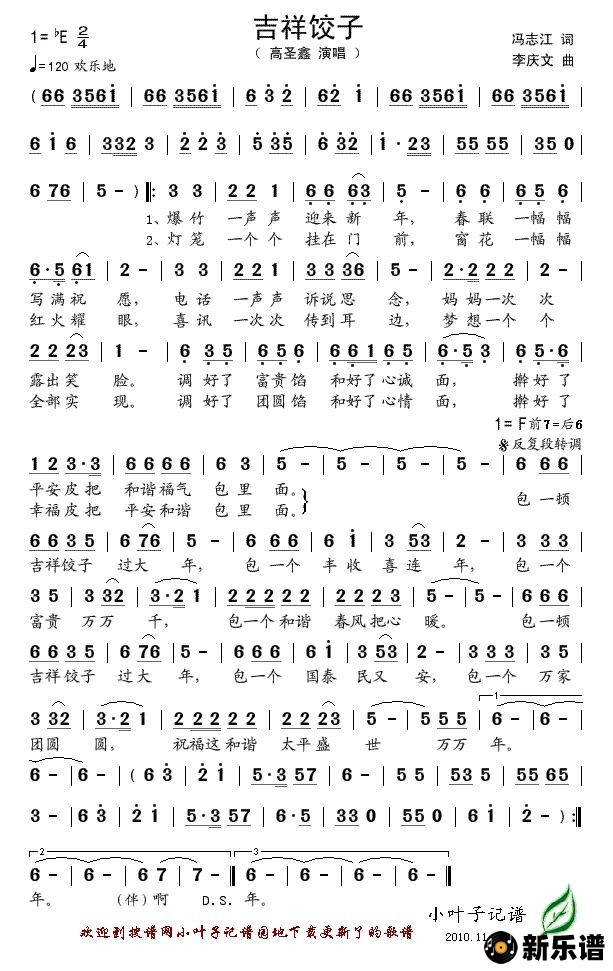 吉祥饺子
1=♭E 2/4
（ 高圣鑫 演唱 ）
冯志江 词
♩=120 欢乐地
李庆文 曲
( 66 3561 | 66 3561 | 6 3 2 | 6 2 1 | 66 3561 | 66 3561 |
6 1 6 | 332 3 | 2 2 3 | 5 35 | 6 32 | 1· 23 | 55 55 | 35 0 |
6 76 | 5 - ) ‖: 3 3 | 2 2 1 | 6 6 63 | 5 - | 6 6 | 6 5 6 |
1、爆 竹 一声 声 迎来 新 年， 春 联 一幅 幅
2、灯 笼 一个 个 挂在 门 前， 窗 花 一幅 幅
6·5 61 | 2 - | 3 3 | 2 2 1 | 3 3 36 | 5 - | 2·2 2 2 | 5 2 |
写 满 祝 愿， 电 话 一声 声 诉说 思 念， 妈妈 一次 次
红 火 耀 眼， 喜 讯 一次 次 传到 耳 边， 梦想 一个 个
2 2 23 | 1 - | 63 6 | 5 5 6 | 6 6 1 6 5 | 6·5 3 | 6 5·6 |
露出 笑 脸。 调 好了 富贵 馅 和好了心诚 面， 擀 好了
全部 实 现。 调 好了 团圆 馅 和好了心情 面， 擀 好了
1=F 前7=后6
𝄋 反复段转调
1 2 3·3 | 6 6 6 6 | 6 3 | 5 - | 5 - | 5 - | 5 - | 6 66 |
平安 皮 把 和谐 福气 包 里 面。
幸福 皮 把 平安 和谐 包 里 面。
包 一顿
6 6 3 5 | 6 76 | 5 - | 6 6 6 | 6 3 5 | 3 53 | 2 - | 3 33 |
吉祥 饺子 过 大 年， 包 一 个 丰 收 喜 连 年， 包 一个
3 5 | 3 32 | 3·2 1 | 2 2 2 2 2 | 2 2 2 3 | 5 - | 5 - | 6 66 |
富 贵 万 万 千， 包一个 和谐 春风 把心 暖。 包 一顿
6 6 3 5 | 6 76 | 5 - | 6 6 6 | 6 3 1 | 3 53 | 2 - | 3 3 3 | 3 3 5 |
吉祥 饺子 过 大 年， 包 一个 国 泰 民 又 安， 包 一个 万 家
3 32 | 3·2 1 | 2 2 2 2 2 | 2 2 23 | 5 - | 5 - | 5 5 5 | 6 - | 6 - |
团 圆 圆， 祝福 这和谐 太平 盛 世 万 万 年。
6 - | 6 - | (6 3 | 2 1 | 5·3 57 | 6·5 3 | 33 0 | 55 0 | 55 65 |
3 - | 6 3 | 2 1 | 5·3 57 | 6·5 | 33 0 | 55 0 | 6 1 | 2 - ) :‖
6 - | 6 - | 6 7 | 6 - :‖ 6 - | 6 - | 6 - | 6 - ‖
年。 （伴）啊 D.S. 年。
小叶子记谱
欢迎到搜谱网小叶子记谱园地下载更新了的歌谱
2010.11
新乐谱